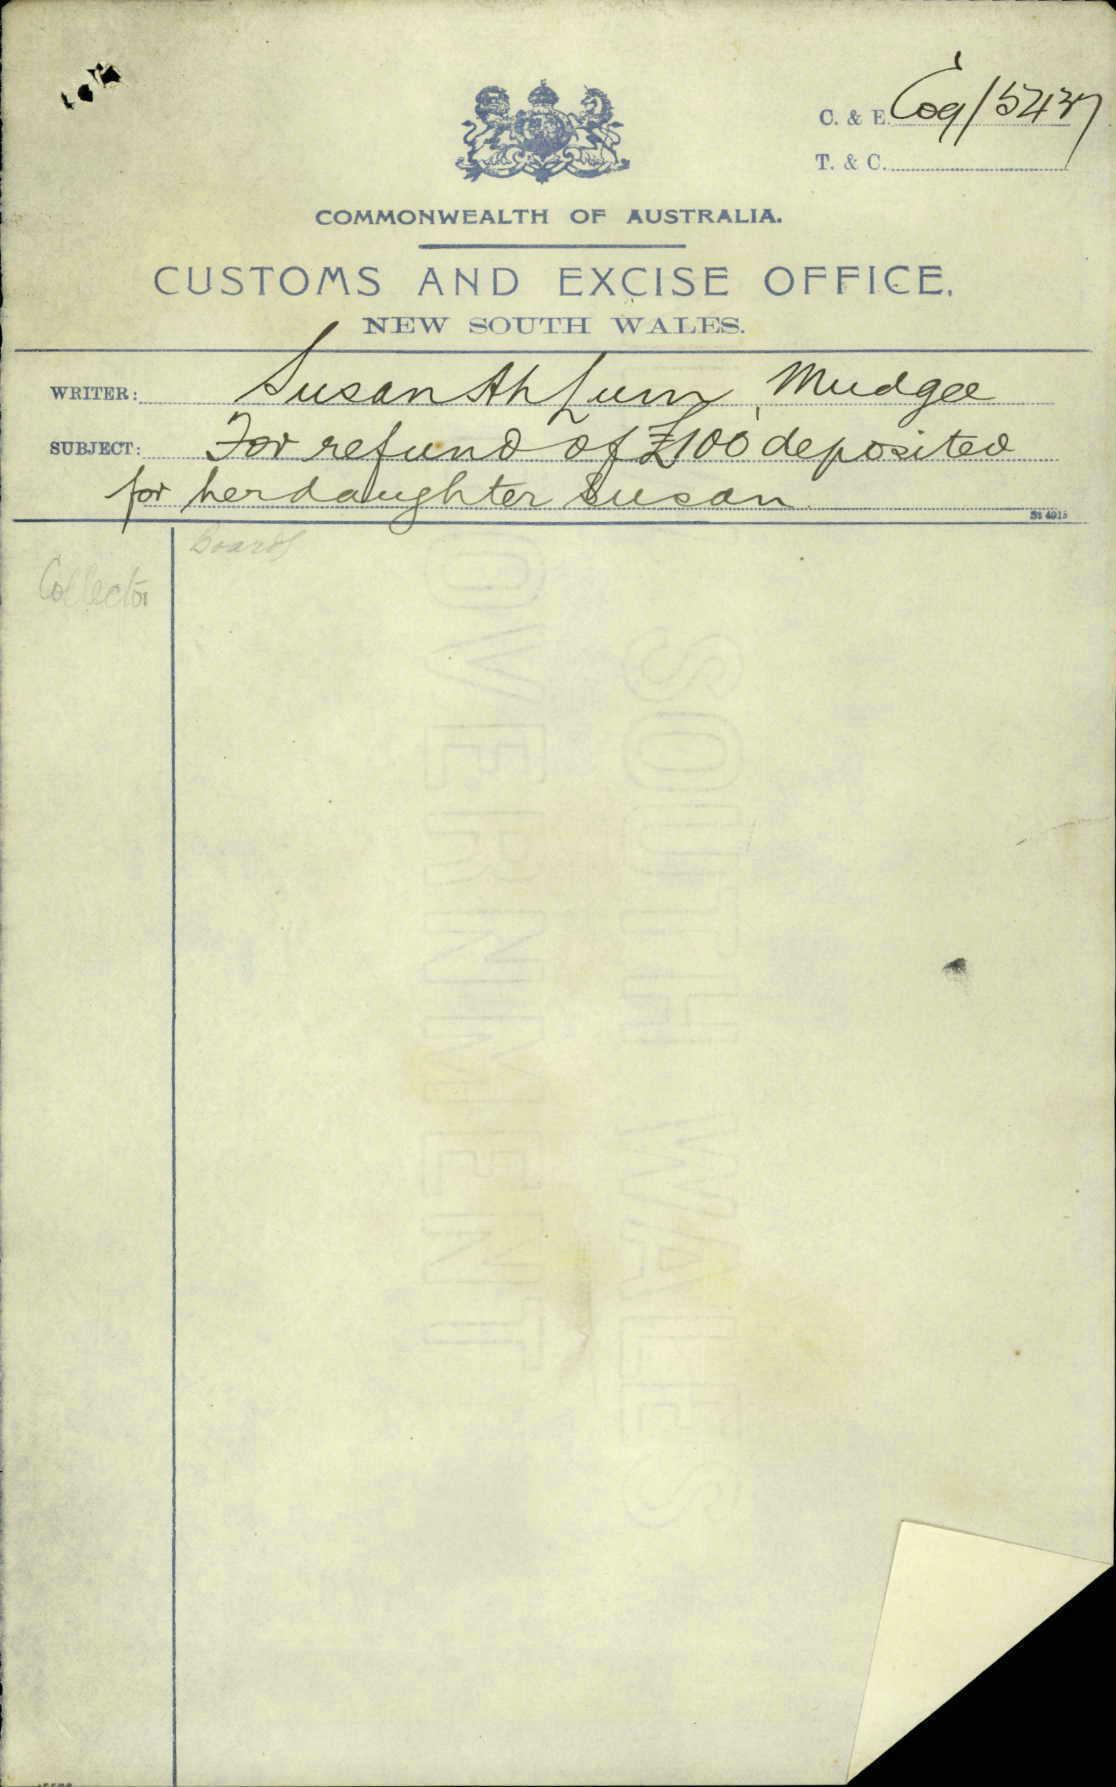 C. & E. C09/5437
T. & C.
COMMONWEALTH OF AUSTRALIA.
CUSTOMS AND EXCISE OFFICE,
NEW SOUTH WALES.
WRITER: Susan Ah Lum, Mudgee
SUBJECT: For refund of £100 deposited
for her daughter Susan.
St 4915
Boards
Collector
SOUTH WALES
GOVERNMENT